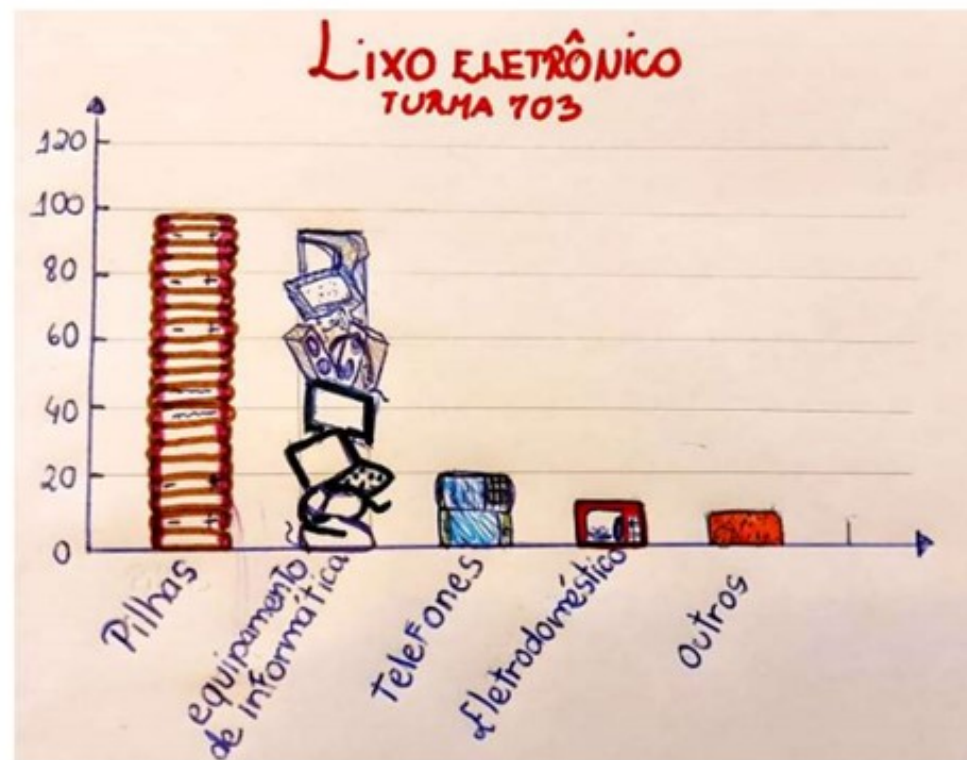 LIXO ELETRÔNICO
TURMA 703
120
100
80
60
40
20
0
Pilhas
equipamento
de informática
Telefones
Eletrodoméstico
outros